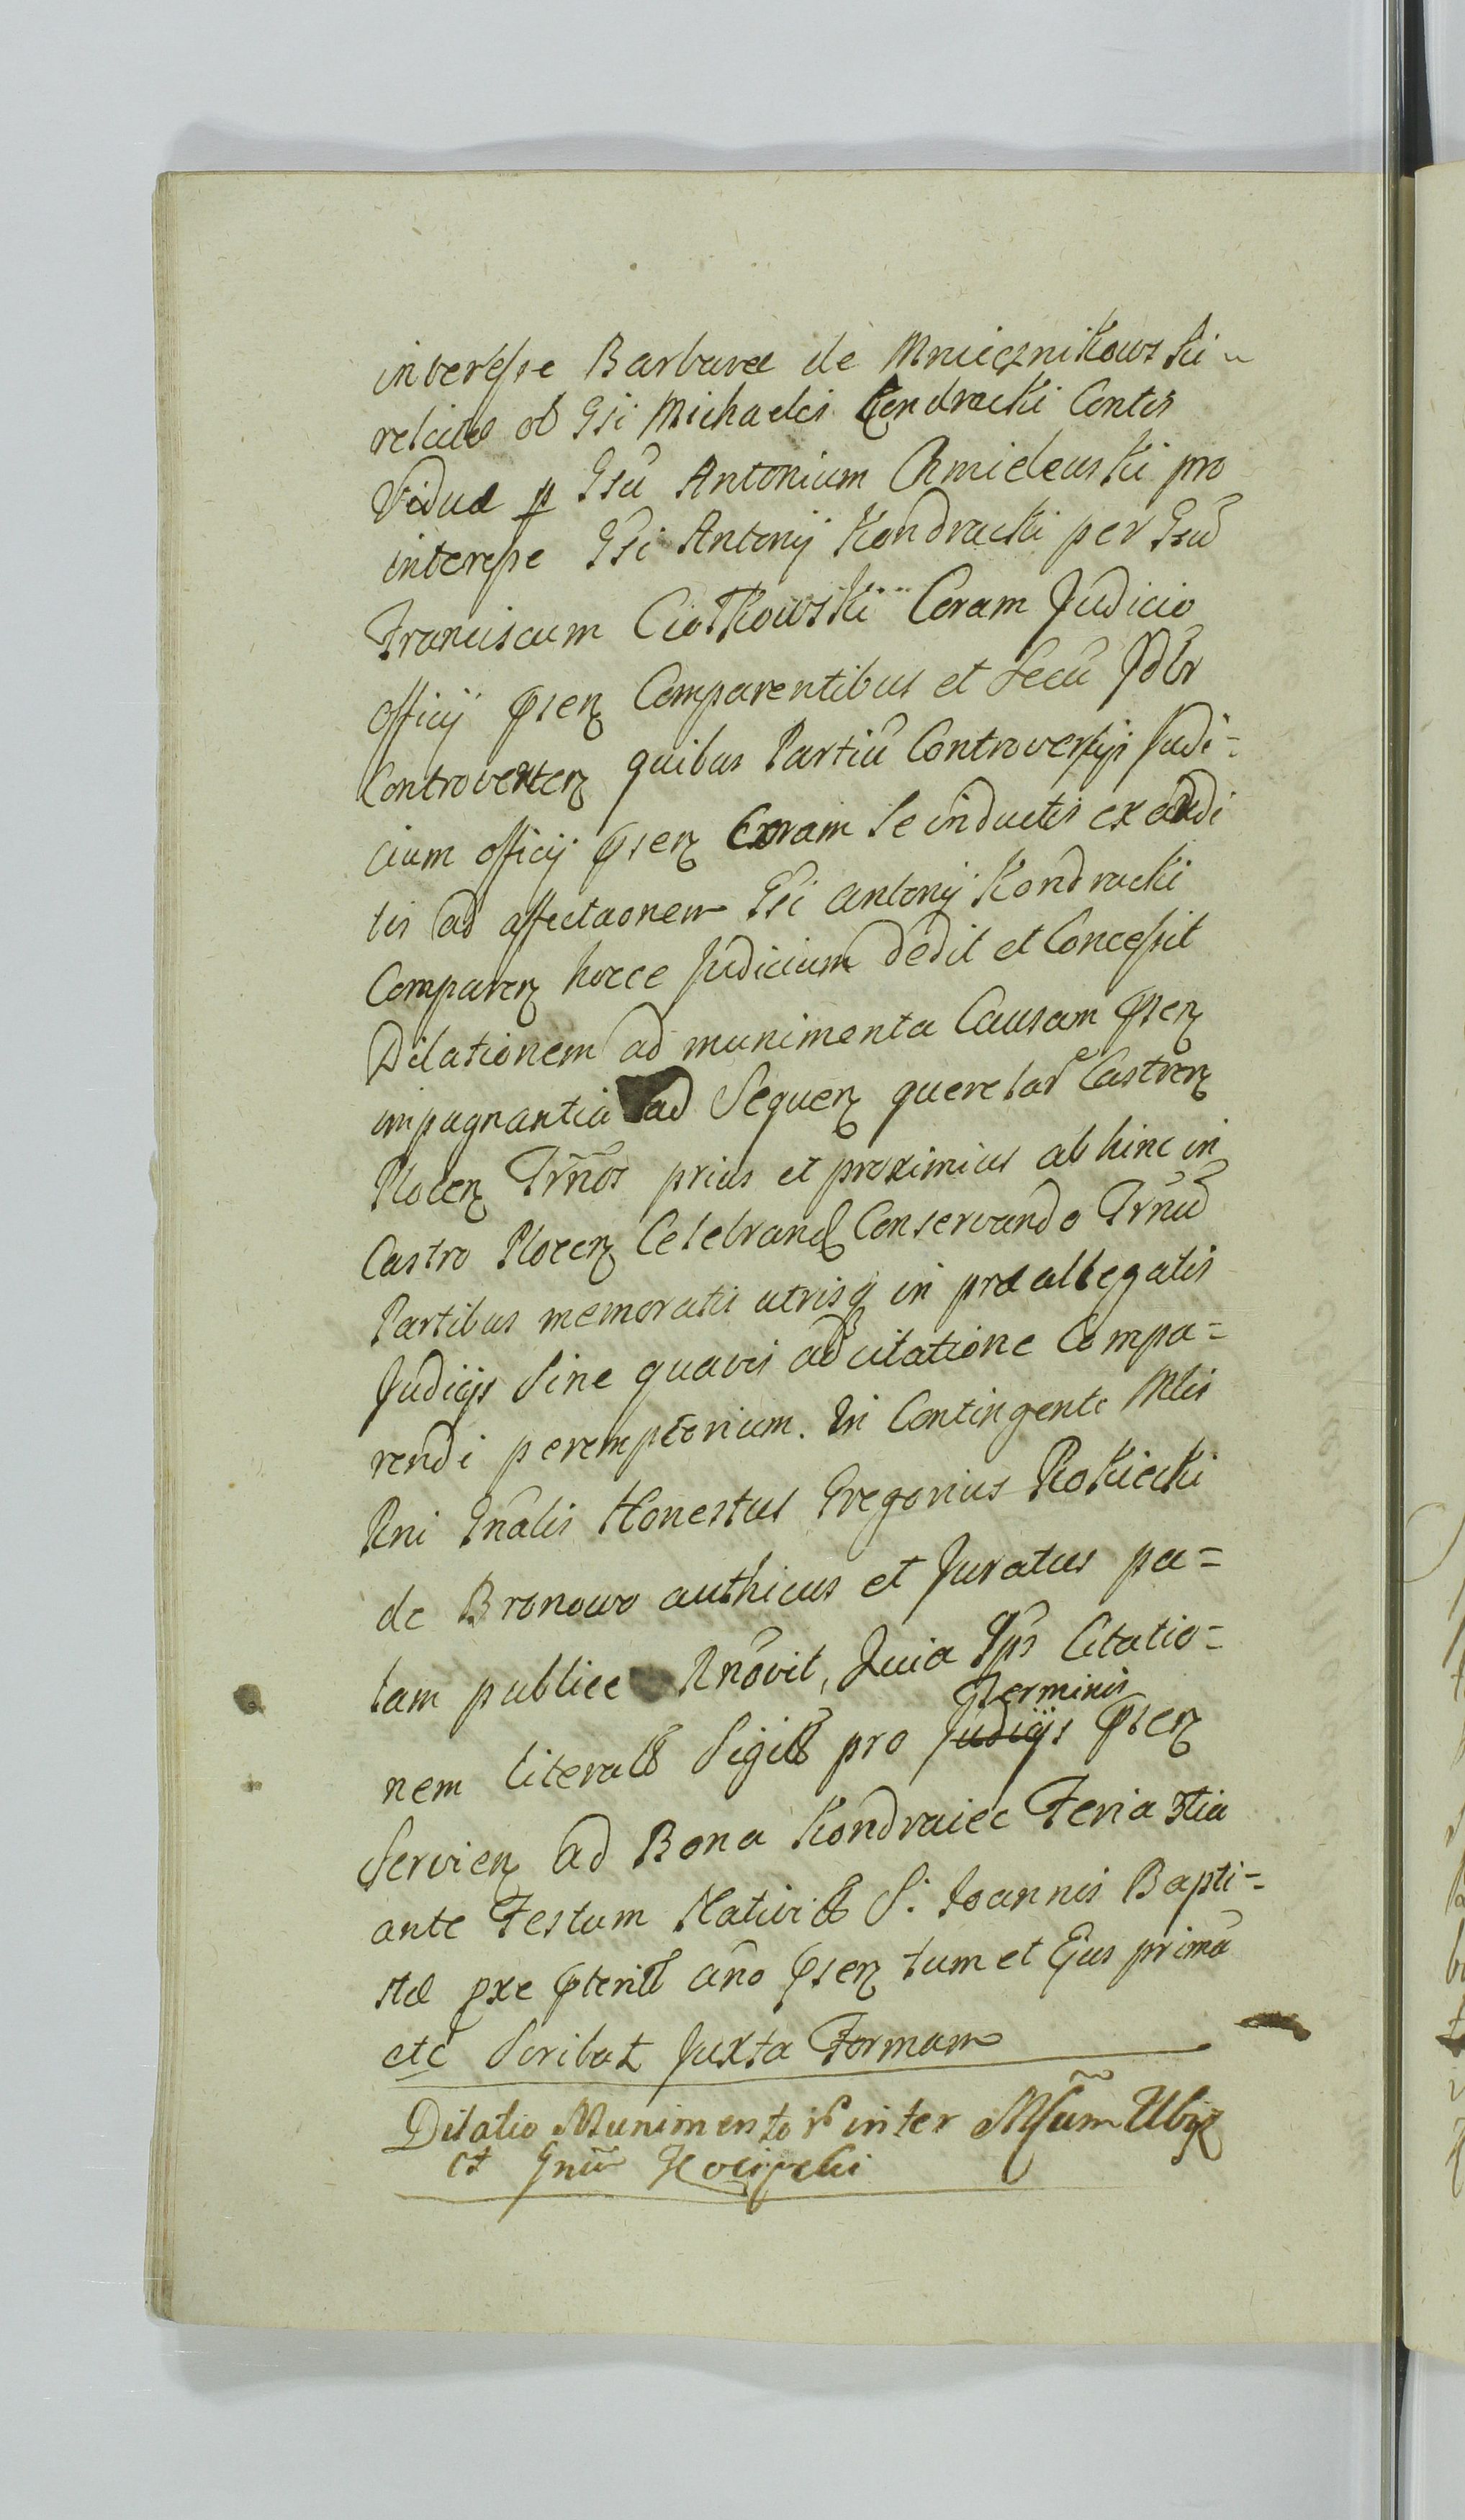 interesse Barbarae de Mniecznikowski
relictae ol Gsi Michaelis Kondracki Contis
Viduae p Gsu Antonium Chmielewski pro
interesse Gsi Antonij Kondracki per Gsu
Franciscum Ciotkowski Coram Judicio
officij pnsen Comparentibus et Secu Jdlr
Controverten quibus Partiu Controversijs Judi=
cium officij pnsen Coram Se inductis exaudi
tis ad affectaonem Gsi Antonij Kondracki
Comparen hocce Judicium dedit et Concessit
Dilationem ad munimenta Causam pnsen
impugnantia ad Sequen querelar Castren
Plocen Trnos prius et proximius abhinc in
Castro Plocen Celebrand Conservando Trnu
Partibus memoratis utrisq in praeallegatis
Judicijs Sine quavis adcitatione Compa=
rendi peremptorium. In Contingenti Mlis
Rni Gnalis Honestus Gregorius Rokicki
de Bronowo authicus et Juratus pa=
lam publice Rnovit, Quia Ips Citatio=
nem literall Sigill pro Judicijs Terminis pnsen
Servien ad Bona Kondraiec Feria 3tia
ante Festum Nativitt S. Joannis Bapti=
stae pxe pterit ano pnsen tum et Ejus prima
etc Scribat Juxta Formam
Dilatio Munimentor inter Msum Ubiz
et Gnu Kocipcki